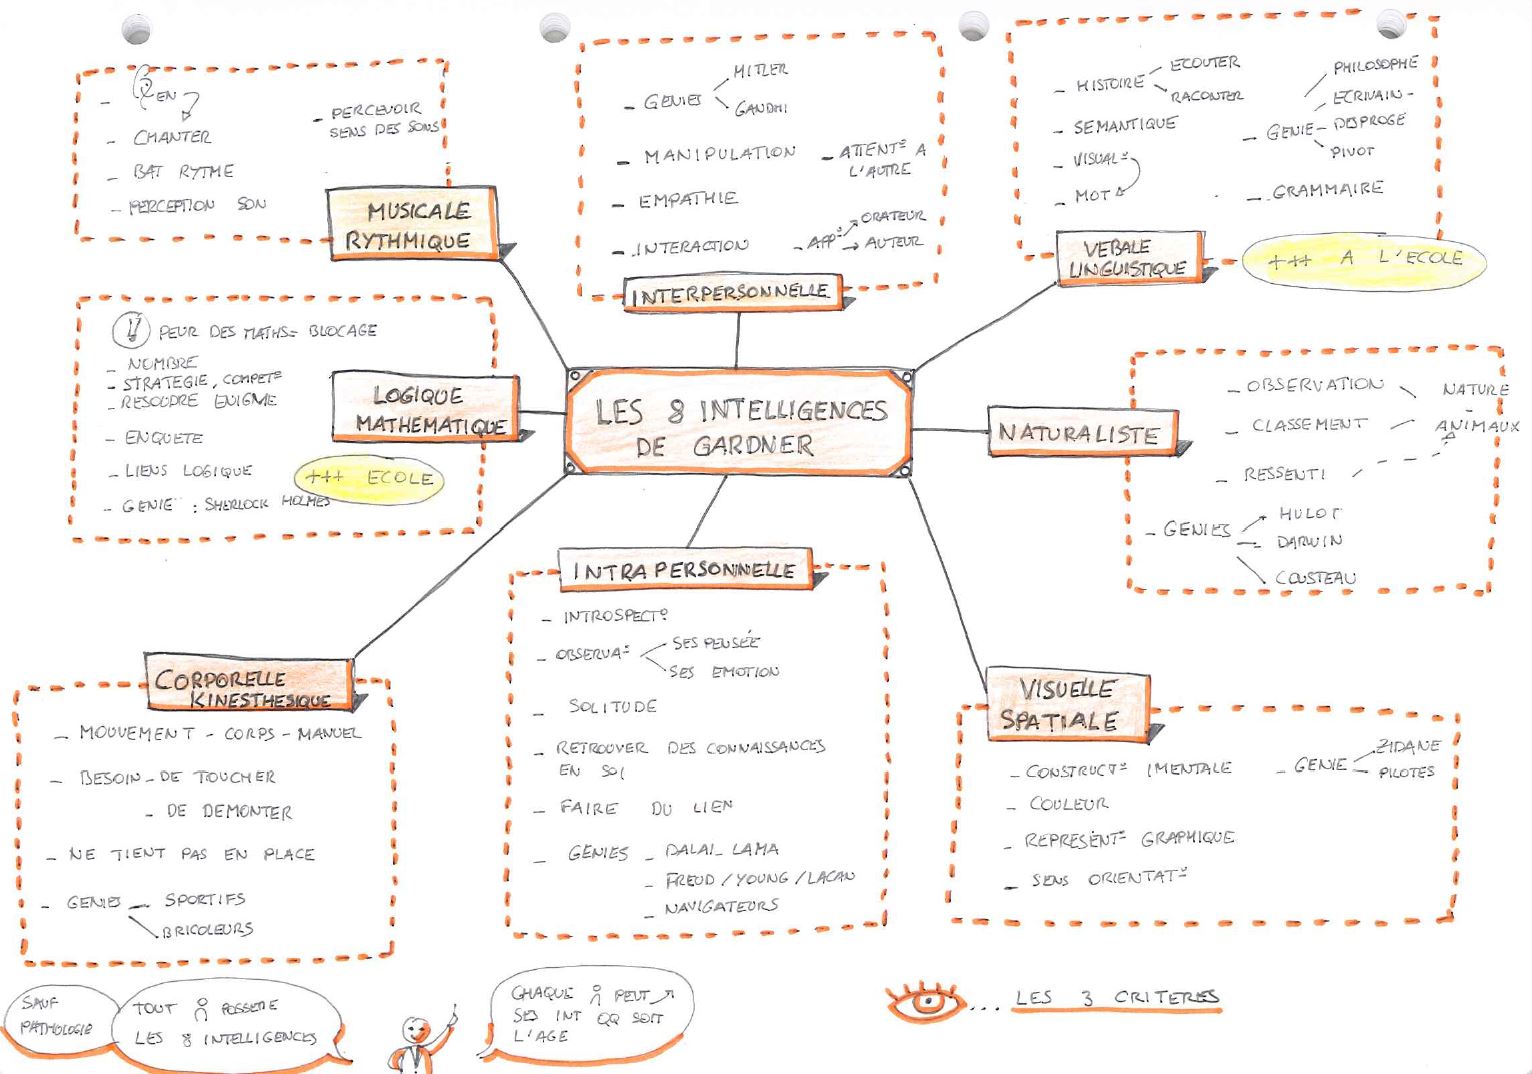 - EN
- CHANTER
- BAT RYTME
- PERCEPTION SON
- PERCEVOIR
SENS DES SONS
MUSICALE
RYTHMIQUE
- GENIES
HITLER
GANDHI
- MANIPULATION
- ATTENT° A
L'AUTRE
- EMPATHIE
- INTERACTION
- APP°
ORATEUR
AUTEUR
INTERPERSONNELLE
- HISTOIRE
ECOUTER
RACONTER
- SEMANTIQUE
- VISUAL°
- MOT
- GENIE
PHILOSOPHE
ECRIVAIN -
DESPROGE
PIVOT
- GRAMMAIRE
VEBALE
LINGUISTIQUE
+++ A L'ECOLE
! PEUR DES MATHS = BLOCAGE
- NOMBRE
- STRATEGIE, COMPET°
- RESOUDRE ENIGME
- ENQUETE
- LIENS LOGIQUE
- GENIE : SHERLOCK HOLMES
+++ ECOLE
LOGIQUE
MATHEMATIQUE
LES 8 INTELLIGENCES
DE GARDNER
NATURALISTE
- OBSERVATION
- CLASSEMENT
NATURE
ANIMAUX
- RESSENTI
- GENIES
HULOT
DARWIN
COUSTEAU
CORPORELLE
KINESTHESIQUE
- MOUVEMENT - CORPS - MANUEL
- BESOIN - DE TOUCHER
- DE DEMONTER
- NE TIENT PAS EN PLACE
- GENIES - SPORTIFS
BRICOLEURS
INTRAPERSONNELLE
- INTROSPECT°
- OBSERVA°
SES PENSÉE
SES EMOTION
- SOLITUDE
- RETROUVER DES CONNAISSANCES
EN SOI
- FAIRE DU LIEN
- GENIES - DALAI-LAMA
- FREUD / YOUNG / LACAN
- NAVIGATEURS
VISUELLE
SPATIALE
- CONSTRUCT° IMENTALE
- COULEUR
- REPRESENT° GRAPHIQUE
- SENS ORIENTAT°
- GENIE
ZIDANE
PILOTES
SAUF
PATHOLOGIE
TOUT POSSEDE
LES 8 INTELLIGENCES
CHAQUE PEUT
SES INT QQ SOIT
L'AGE
... LES 3 CRITERES